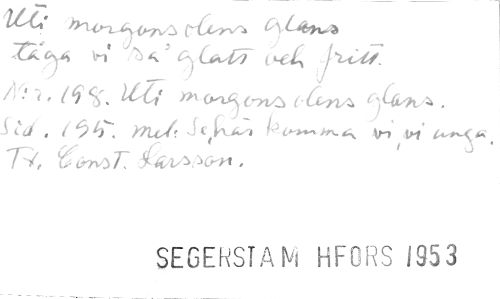 Uti morgonsolens glans
tåga vi så glatt och fritt.
N:r. 198. Uti morgonsolens glans.
Sid. 195. mel: Se, här komma vi, vi unga.
Tx. Const. Larsson.
SEGERSTAM HFORS 1953